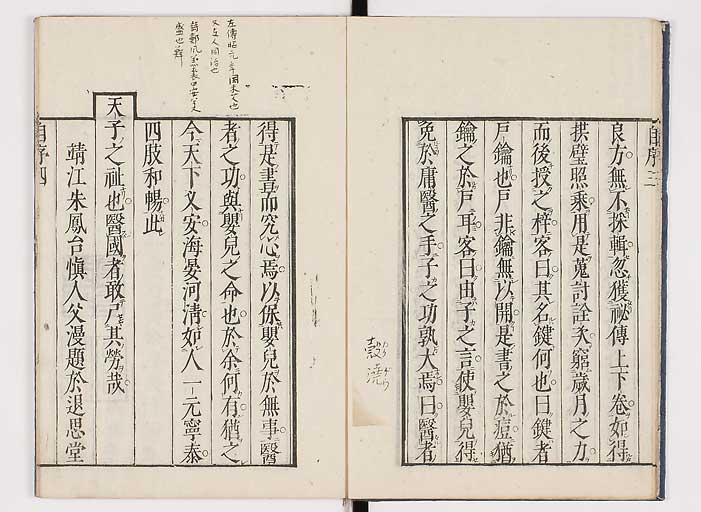 自序三
良方無不採輯忽獲祕傳上下卷如得
拱璧照乘用是蒐討詮次窮歲月之力
而後授之梓客曰其名鍵何也曰鍵者
戸鑰也戸非鑰無以開是書之於痘猶
鑰之於戸耳客曰由子之言使嬰兒得
免於庸醫之手子之功孰大焉曰醫者
得是書而究心焉以保嬰兒於無事醫
者之功與嬰兒之命也於余何有猶之
今天下乂安海晏河清如人一元寧泰
四肢和暢此
天子之祉也醫國者敢尸其勞哉
靖江朱鳳台愼人父漫題於退思堂
自序四